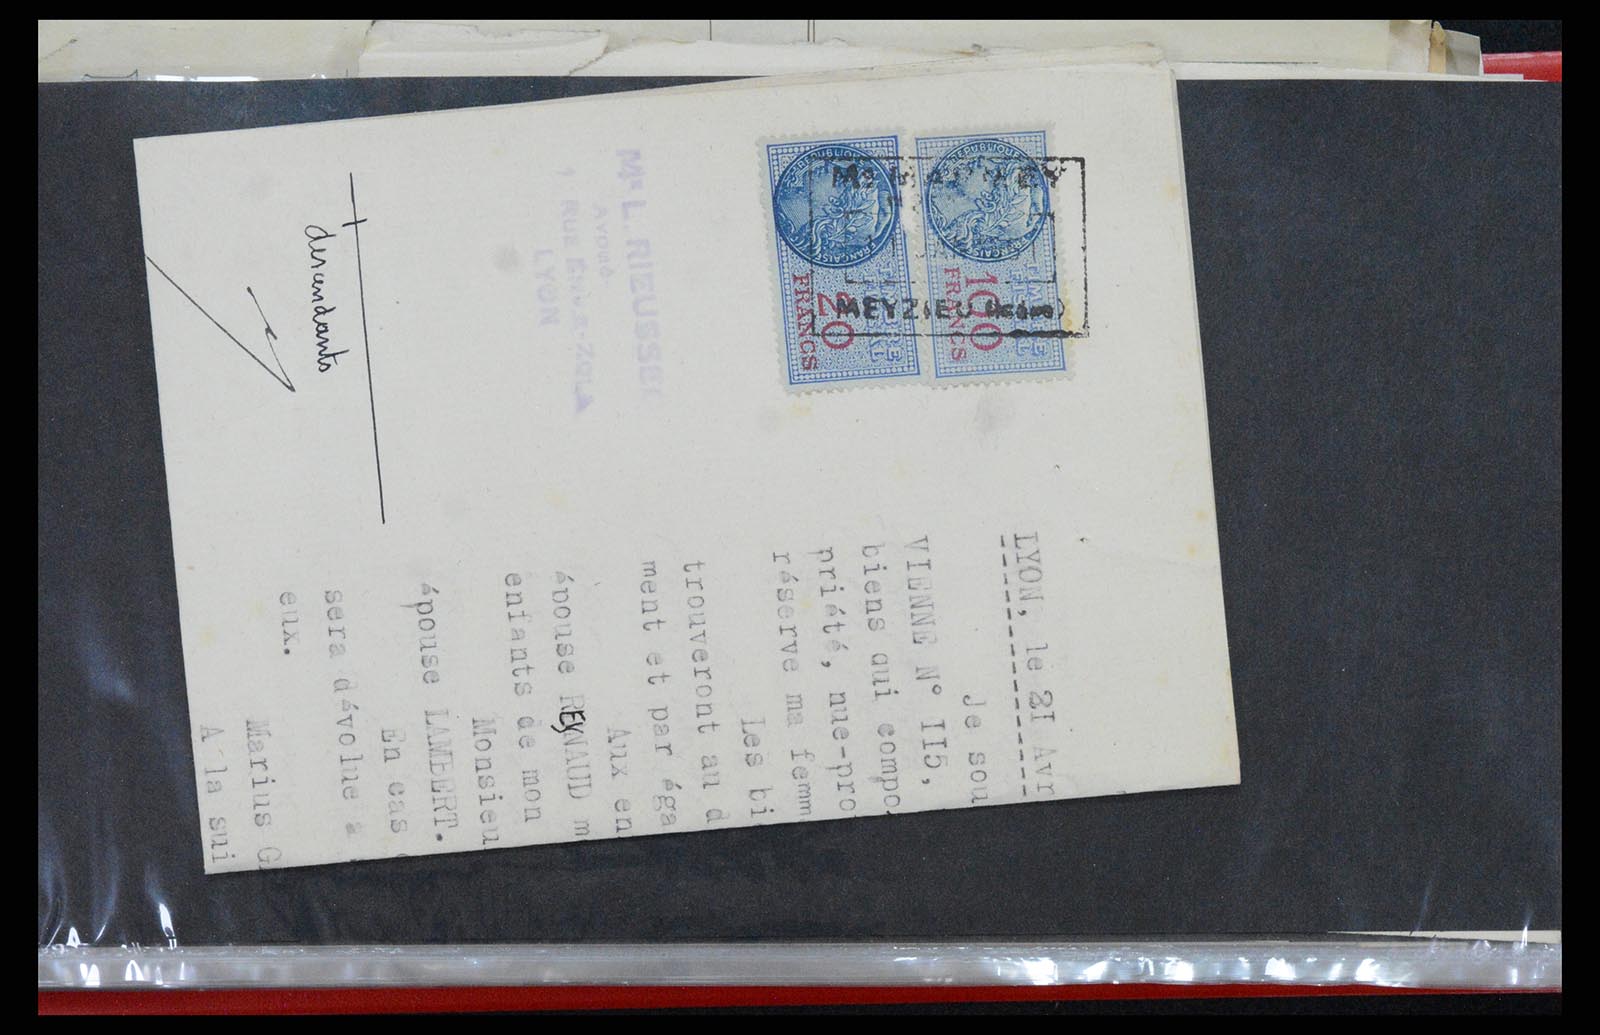 RÉPUBLIQUE FRANÇAISE
TIMBRE FISCAL
20
FRANCS
RÉPUBLIQUE FRANÇAISE
TIMBRE FISCAL
100
FRANCS
Me
MEYZIEU (Isère)
Me L. RIEUSSEC
AVOUÉ
RUE
LYON
descendants
LYON, le 2I Avr
Je sou
VIENNE N° II5,
biens qui compo
priété, nue-pro
réserve ma femm
Les bi
trouveront au d
ment et par éga
Aux en
épouse REYNAUD m
enfants de mon
Monsieu
épouse LAMBERT.
En cas
sera dévolue
eux.
Marius G
A la sui